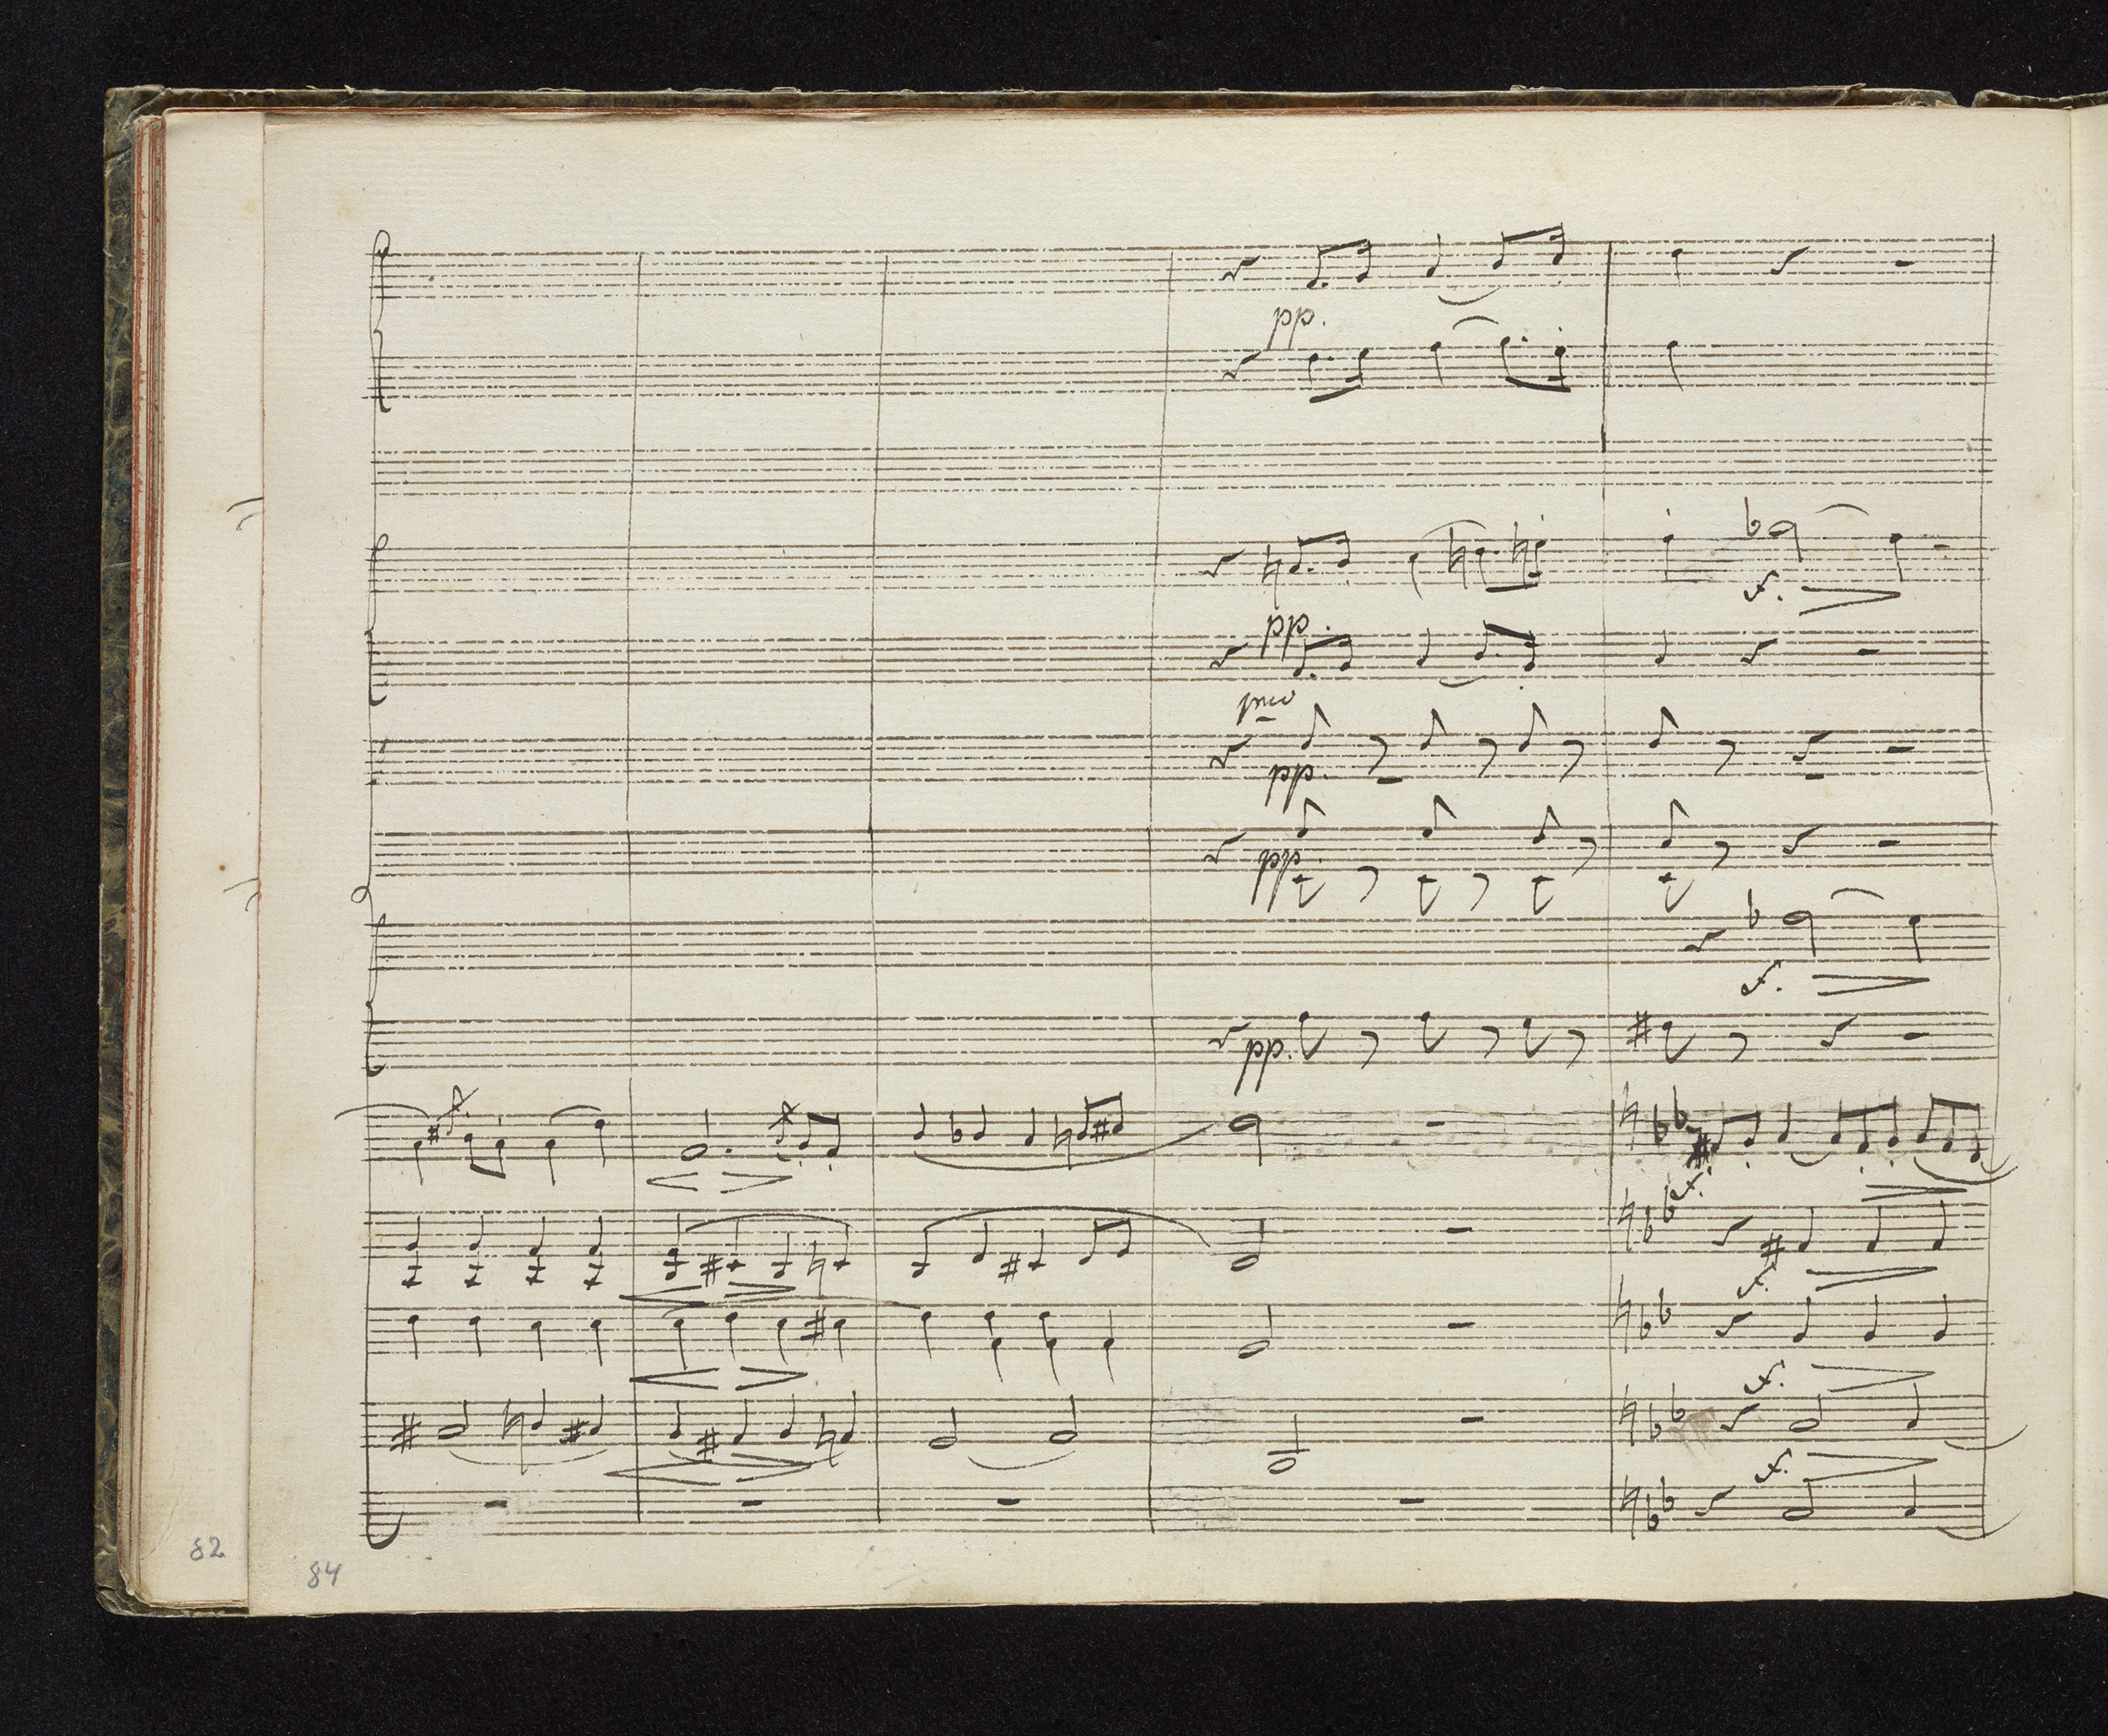 pp.
pp.
pmo
pp.
pp.
f.
f.
pp.
f.
f.
f.
f.
82
84